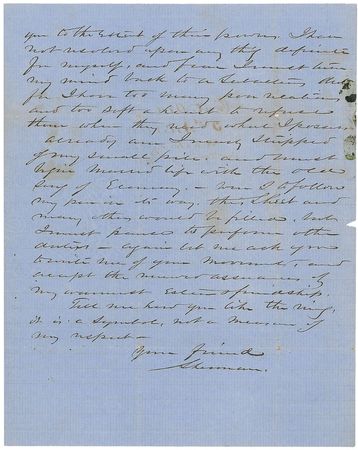 you to the Extent of their powers. I have
not resolved upon any thing definite
for myself, and fear I must turn
my mind back to a Subaltern
for I have too many poor relations,
and too soft a heart to refuse
them when they need what I possess.
Already am I nearly stripped
of my small pile. and must
begin Married life with the olde
Song of Economy. – were I to follow
my pen in its way, this Sheet and
many others would be filled. but
I must pause to perform other
duties – again let me ask you
to write me of your Movements, and
accept the assurance of
my warmest Esteem & friendship.
Tell me how you like the ring,
it is a Symbol, not a Measure of
my respect –
Your friend
Sherman.